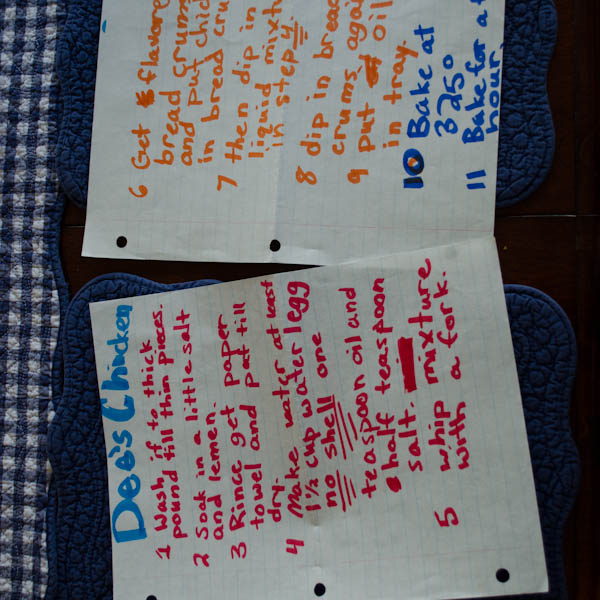 Dee's Chicken
1 Wash, if to thick
pound till thin pieces.
2 Soak in a little salt
and lemen.
3 Rince get paper
towel and pat till
dry.
4 Make water at least
1 1/2 cup water 1 egg
no shell one
teaspoon oil and
half teaspoon
salt.
5 whip mixture
with a fork.
6 Get flavore
bread crums
and put chic
in bread cru
7 then dip in
liquid mixt
in step 4.
8 dip in bread
crums again
9 put oil
in tray.
10 Bake at
325°
11 Bake for a
hour.